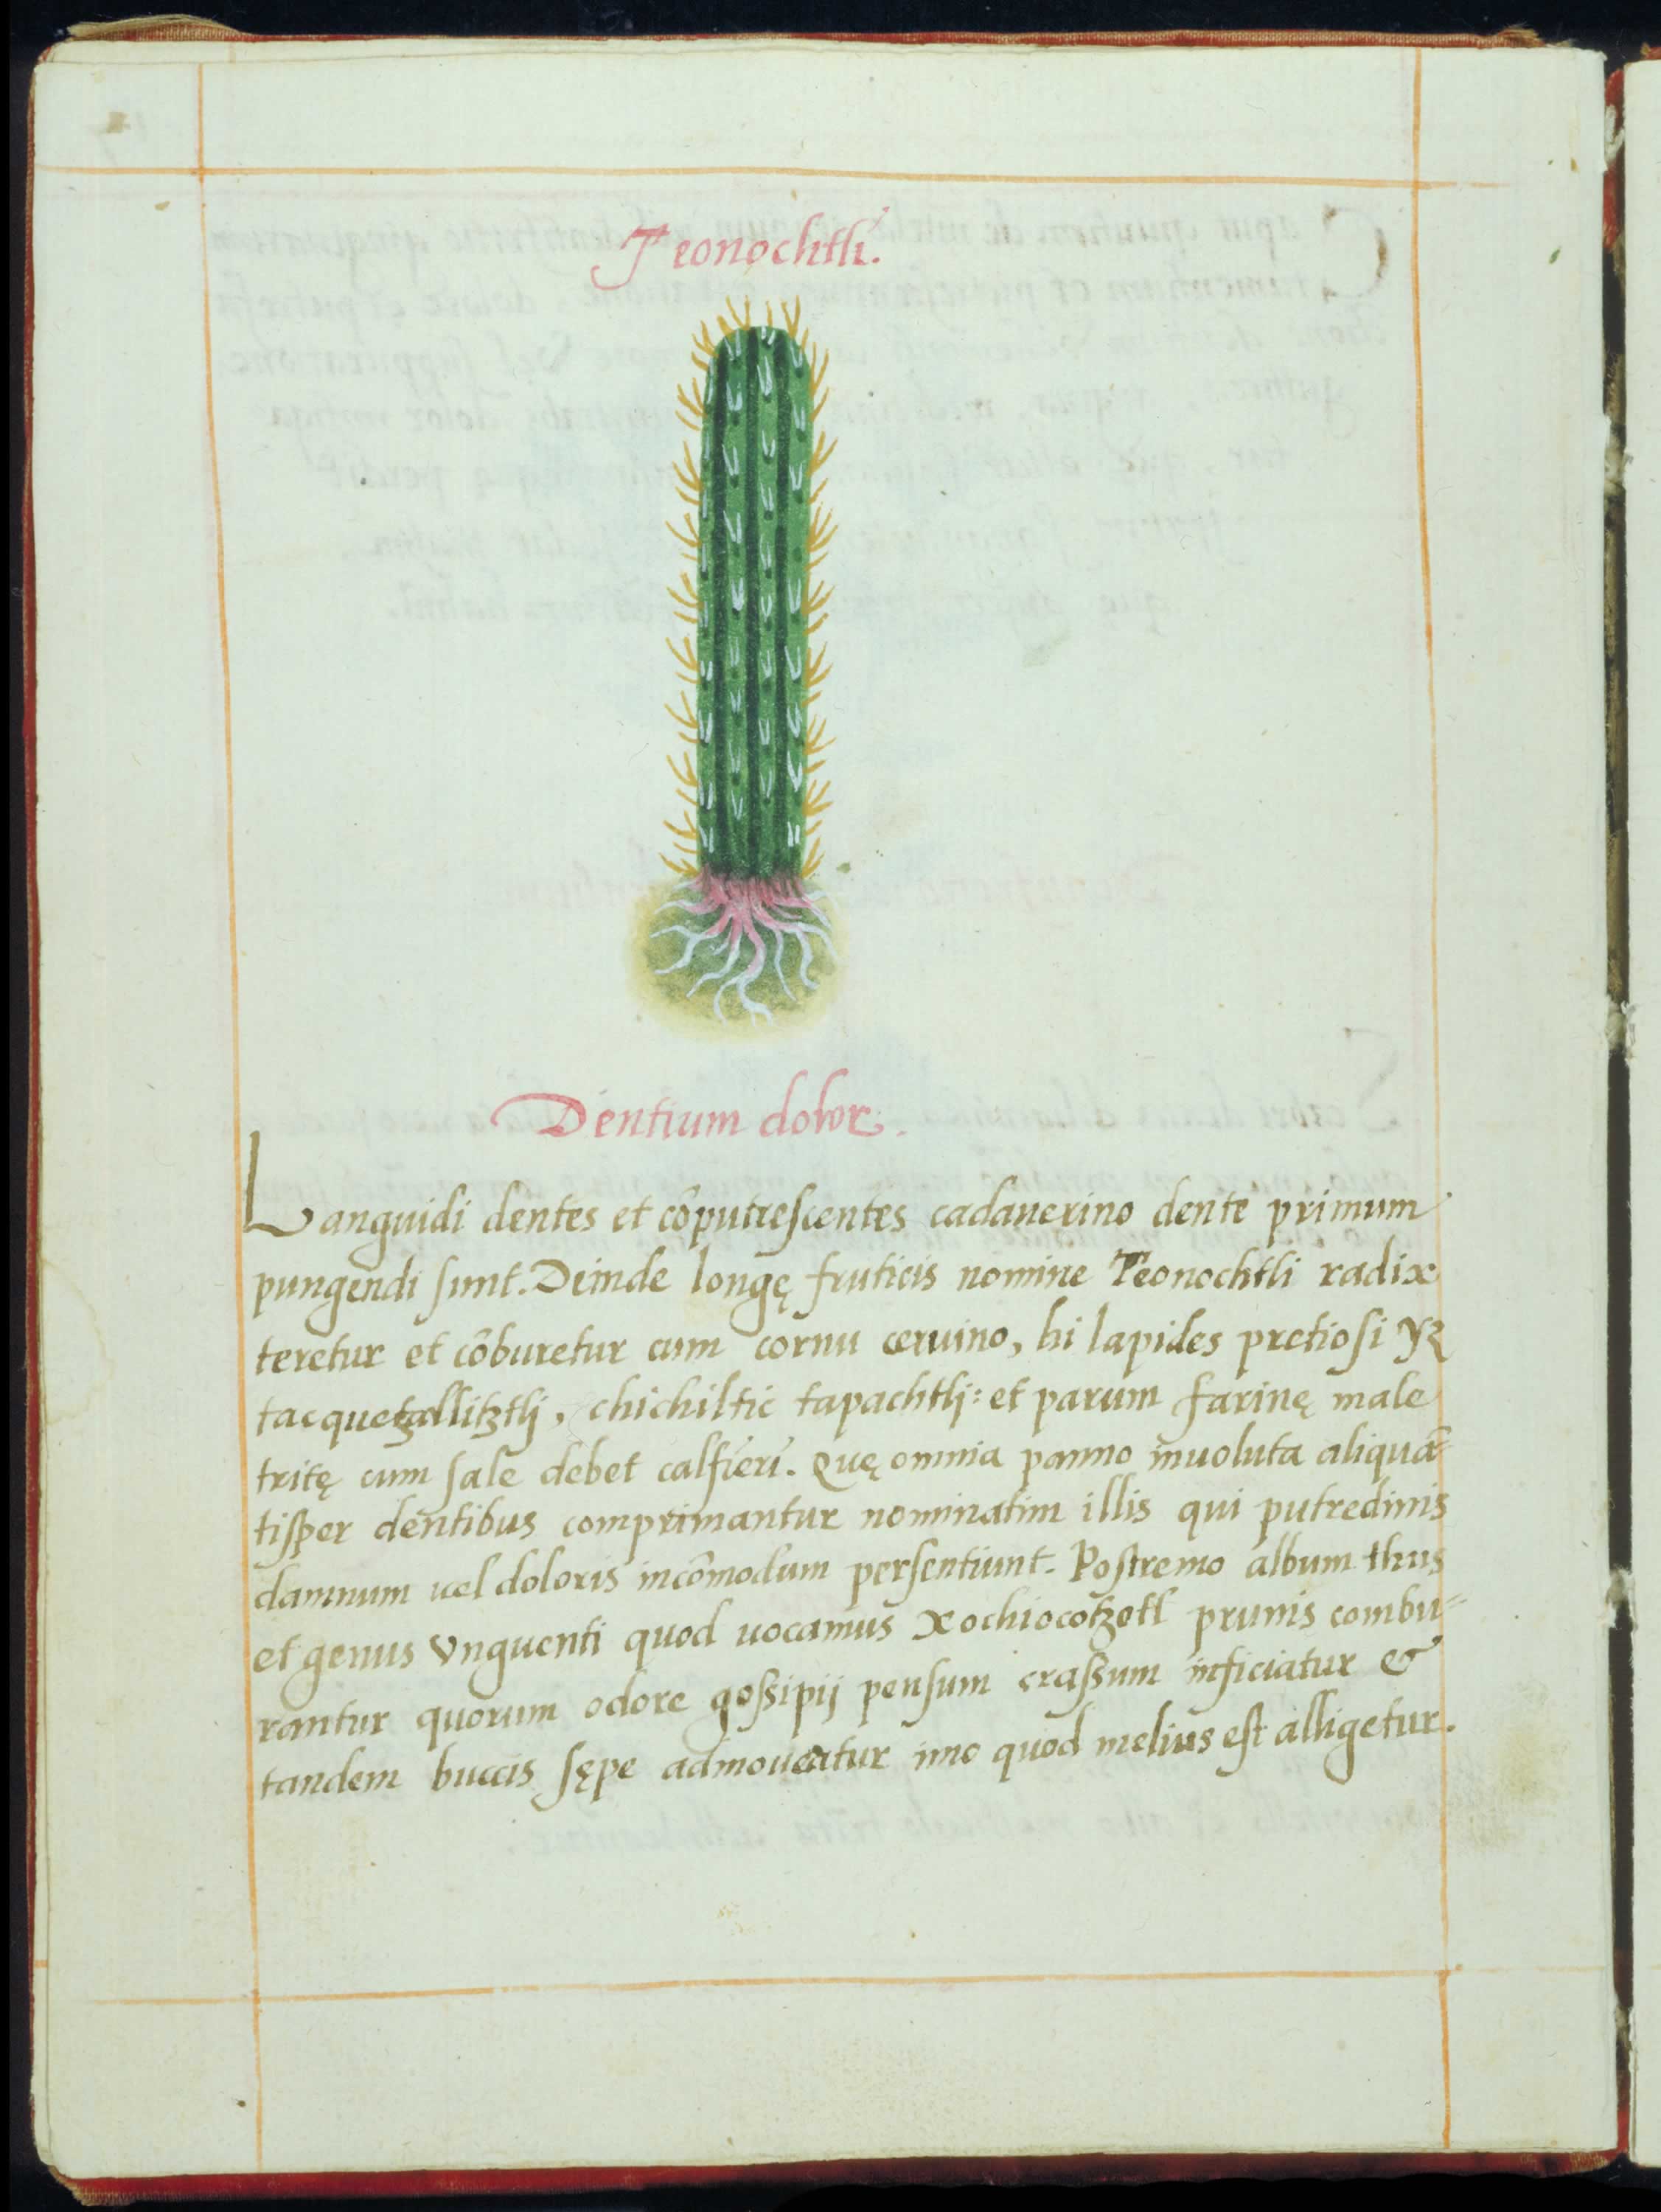 Teonochtli.
Dentium dolor.
Languidi dentes et cōputrescentes cadauerino dente primum
pungendi sunt. Deinde longę fruticis nomine Teonochtli radix
teretur et cōburetur cum cornu ceruino, hi lapides pretiosi yz
tac quetzallitztlj, chichiltic tapachtlj: et parum farinę male
tritę cum sale debet calfieri. Quę omnia panno inuoluta aliquā=
tisper dentibus comprimantur nominatim illis qui putredinis
damnum uel doloris incōmodum persentiunt. Postremo album thus
et genus vnguenti quod uocamus xochiocotzotl prunis combu=
rantur quorum odore gossipij pensum crassum inficiatur &
tandem buccis sępe admoueatur imo quod melius est alligetur.